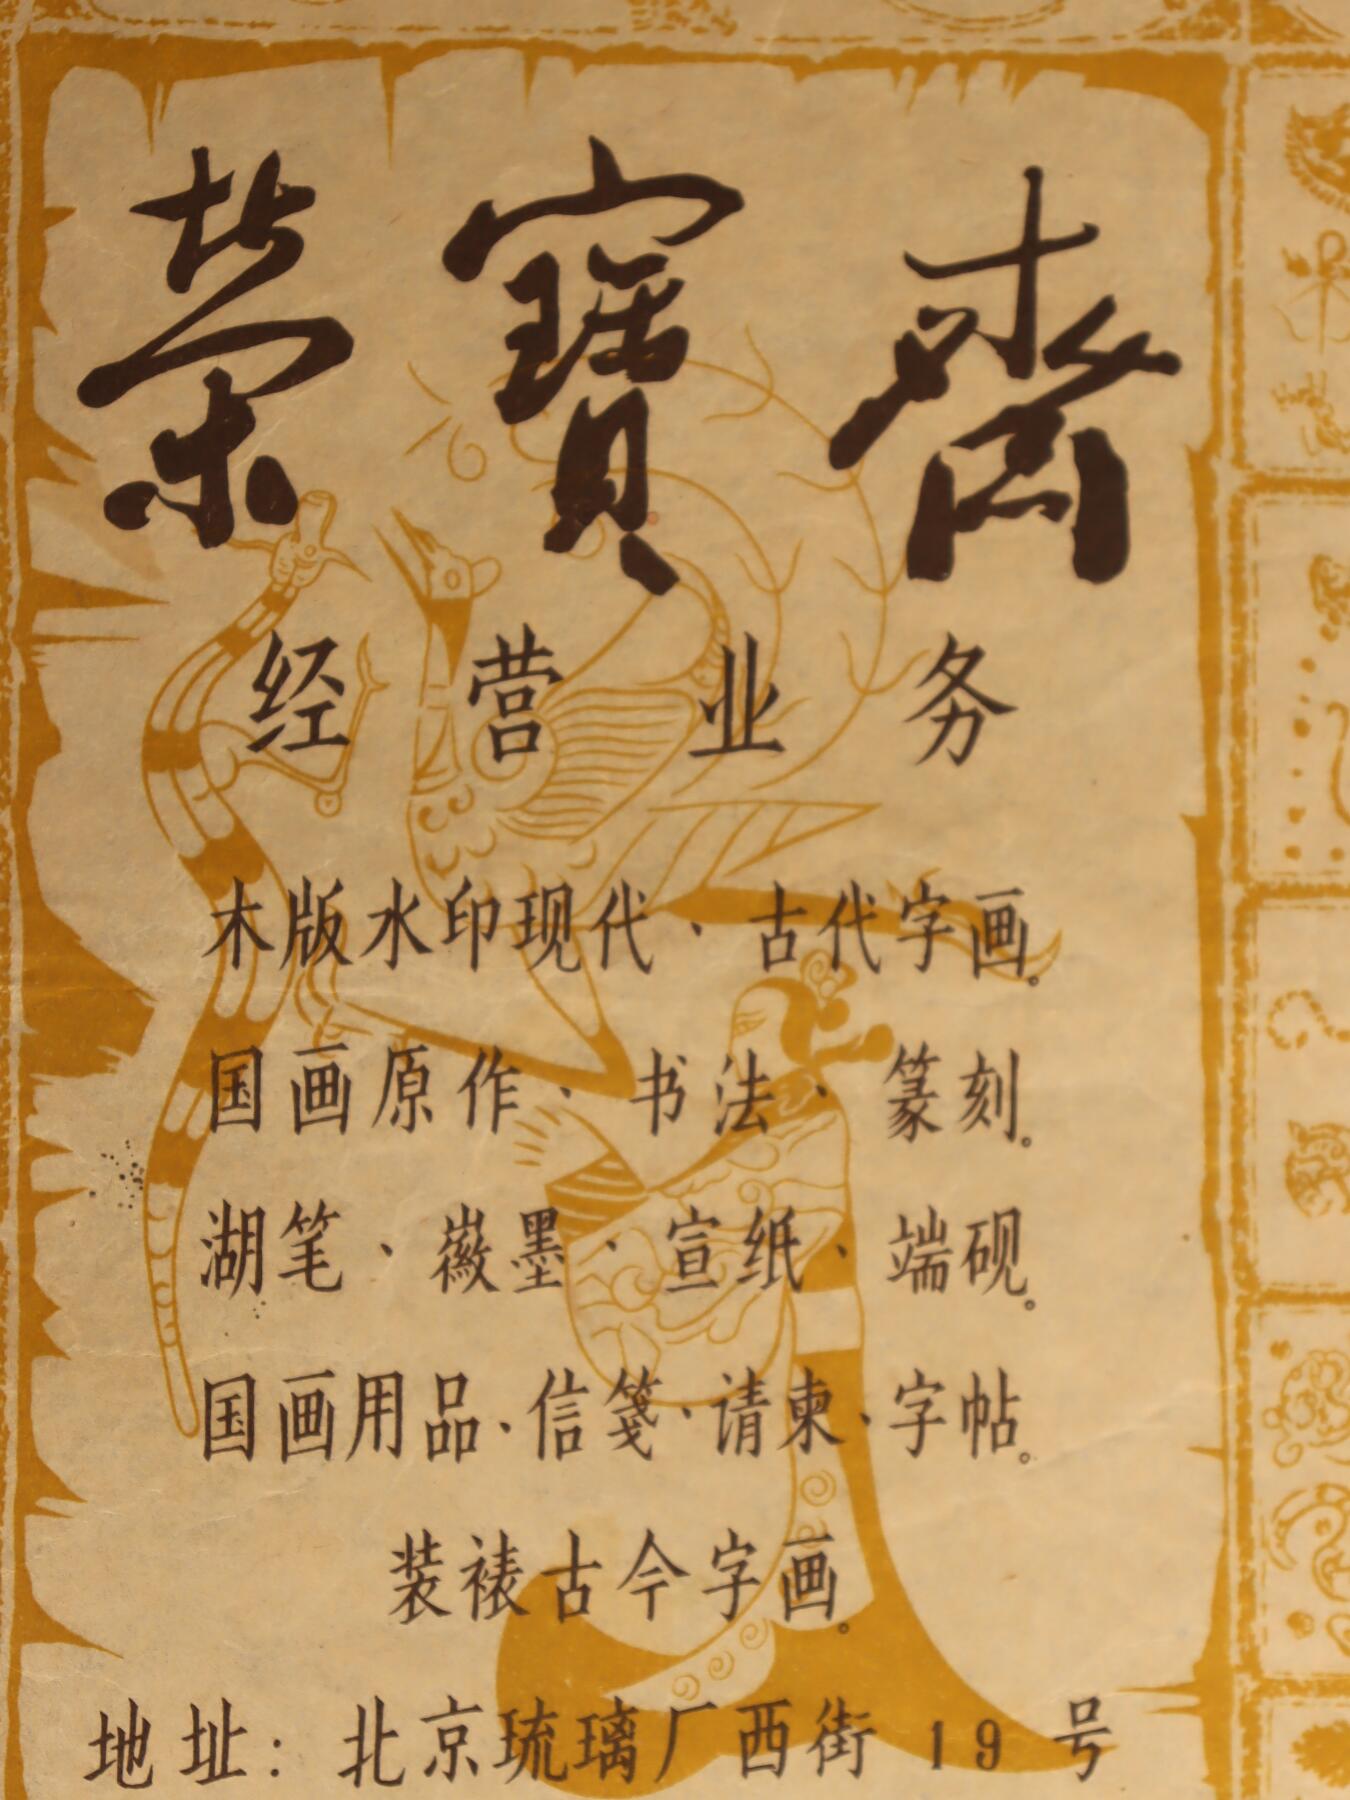 荣寳齋
经营业务
木版水印现代、古代字画。
国画原作、书法、篆刻。
湖笔、徽墨、宣纸、端砚。
国画用品、信笺、请柬、字帖。
装裱古今字画。
地址：北京琉璃厂西街19号